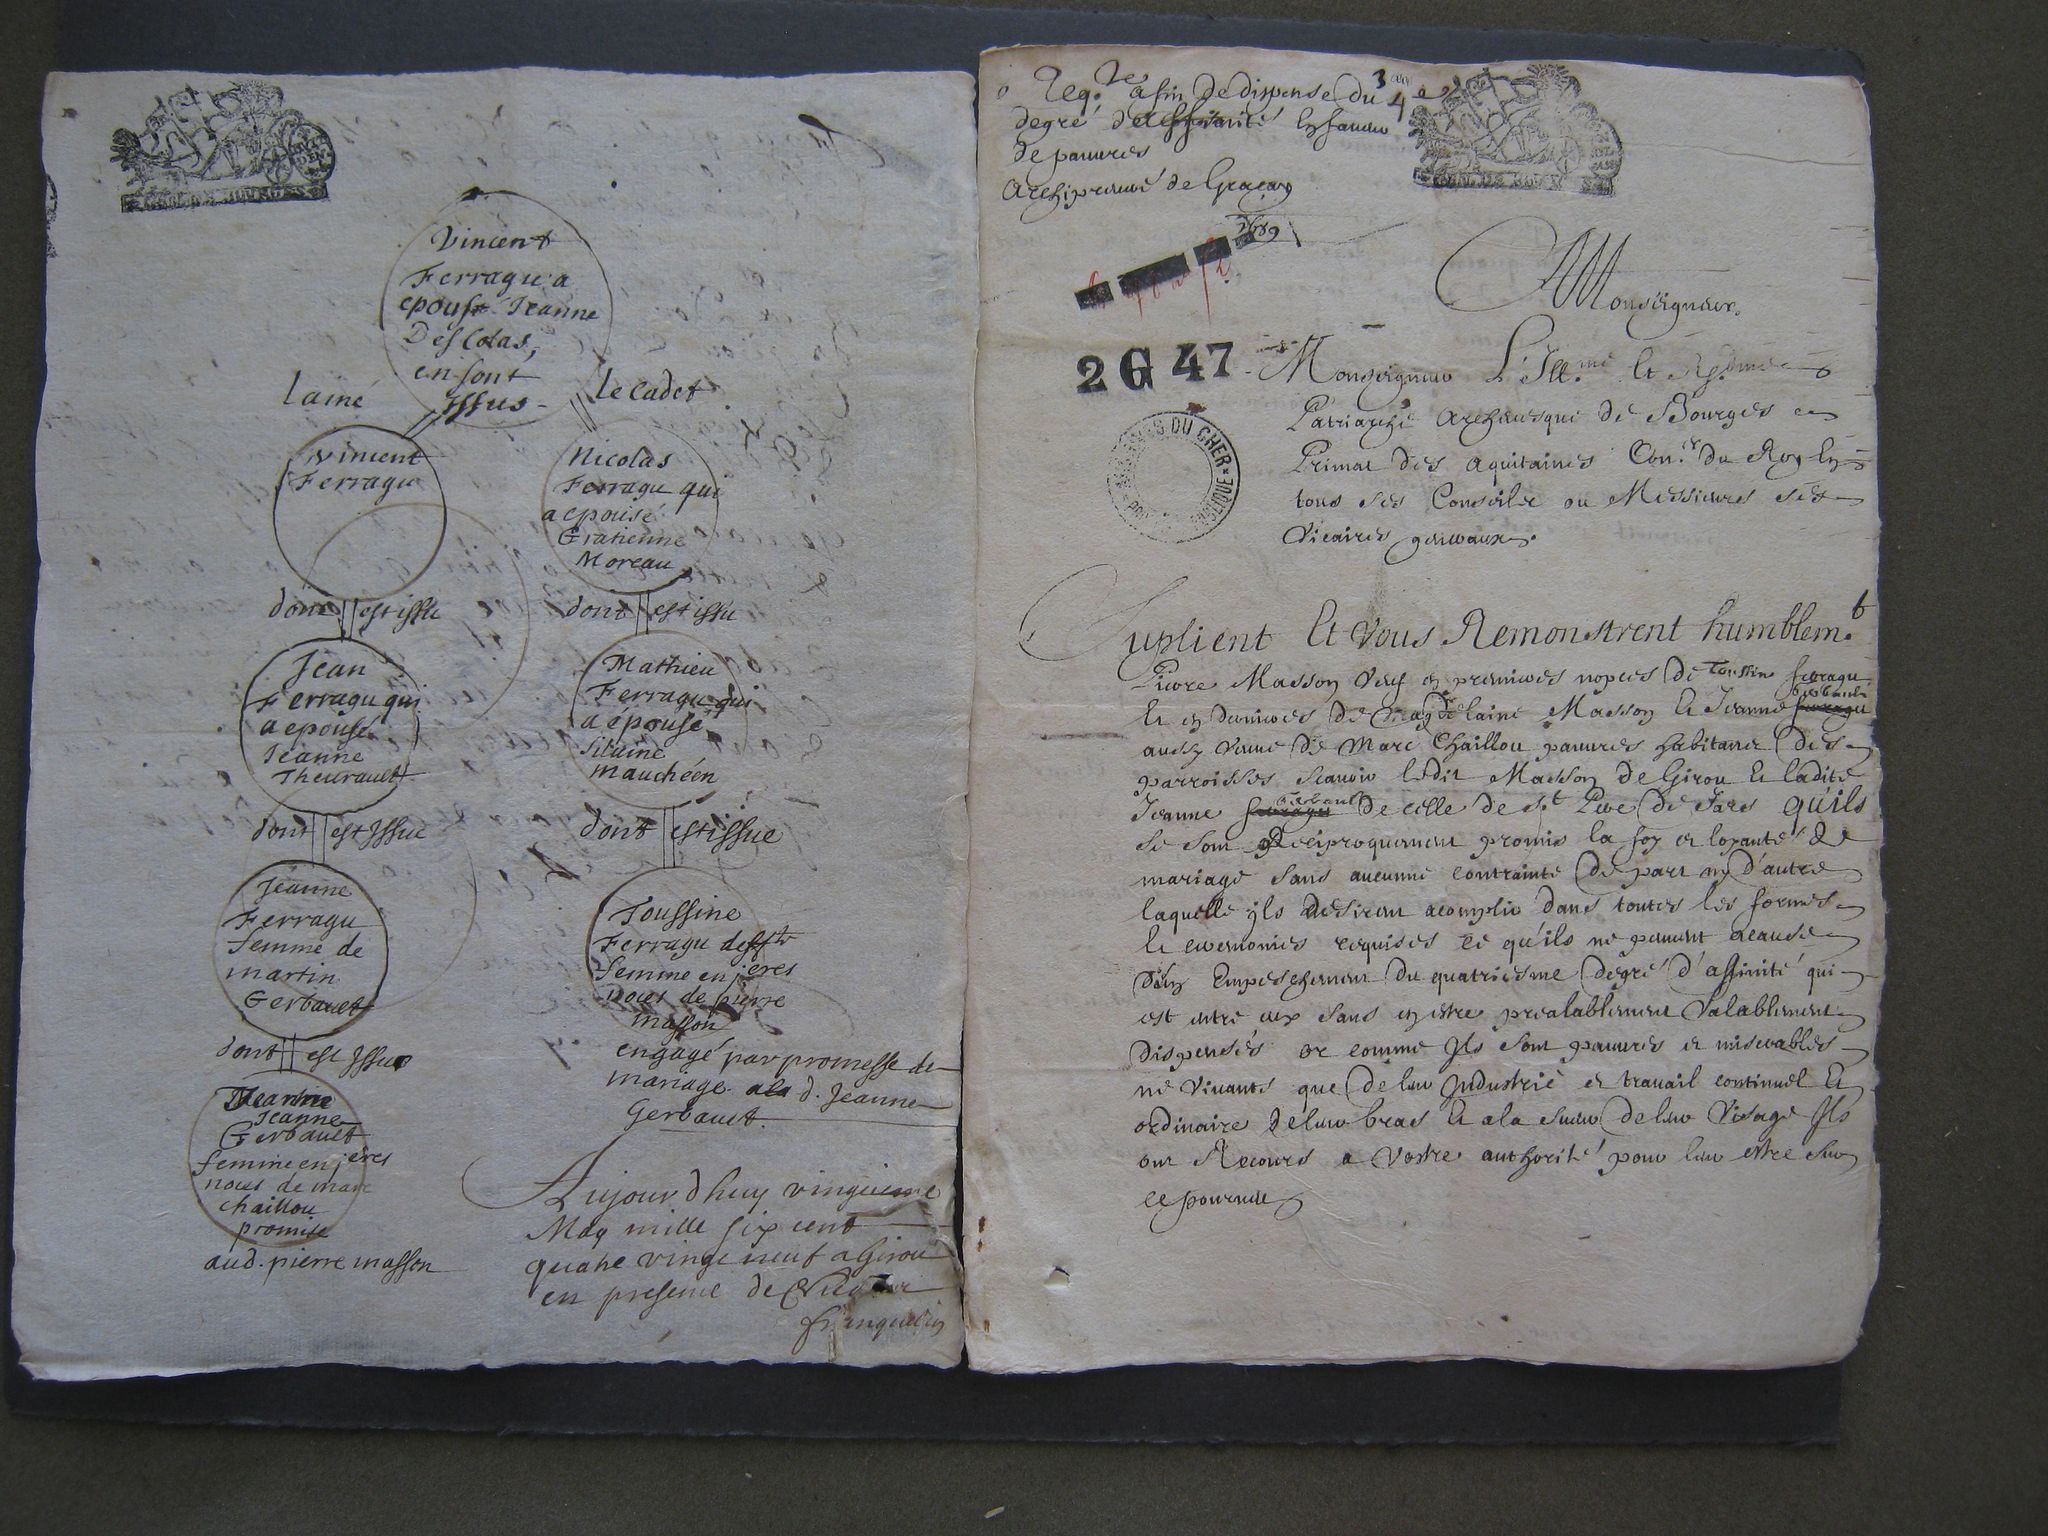 Vincent
Ferragu a
epousé Jeanne
Descolas,
en sont
Issus
lainé
le cadet
Vincent
Ferragu
Nicolas
Ferragu qui
a epousé
Gratienne
Moreau
dont est issu
dont est issu
Jean
Ferragu qui
a epousé
Jeanne
Theurault
Mathieu
Ferragu qui
a épousé
silvine
mauchéen
dont est Issue
dont est issue
Jeanne
Ferragu
femme de
martin
Gerbault
Toussine
Ferragu deffte
femme en jeres
noces de pierre
masson
engagé par promesse de
mariage a la d. Jeanne
Gerbault.
dont est Issue
Jeanne
Gerbault
femme en jeres
noces de marc
chaillou
promise
aud. pierre masson
Aujourdhuy vingtieme
May mille six cent
quatre vingt neuf a Girou
en presence de
Reqte afin de dispense du 3 au 4e
degré daffinité En faveur
de pauvres
Archipreuvé de Graçay
1689
2 G 47
ARCHIVES DU CHER
Monseigneur.
Monseigneur L'Illme et Rdme
Patriarche Archevesque de Bourges
Primat des Aquitaines Coner du Roy En
tous ses Conseils ou Messieurs ses
Vicaires generaux.
Suplient Et Vous Remonstrent humblemt
Pierre Masson Veuf en premieres nopces de Toussine ferragu
Et en dernieres de Magdelaine Masson Et Jeanne Gerbault
aussy Veuve de Marc Chaillou pauvres habitans des
parroisses scavoir ledit Masson de Girou Et ladite
Jeanne Gerbault de celle de St Pere de Jars qu'ils
se sont Reciproquement promis la foy et loyauté de
mariage sans aucunne contrainte de part ny d'autre
laquelle ils desirent acomplir dans toutes les formes
Et ceremonies requises ce qu'ils ne peuvent acause
d'un Empeschement du quatriesme degré d'affinité qui
est entre eux sans en estre prealablement Valablement
dispensés or comme Ils sont pauvres et miserables
ne Vivants que de leur Industrie et travail continuel Et
ordinaire de leur bras Et a la sueur de leur Visage Ils
ont Recours a Vostre authorité pour leur estre sur
ce pourveu